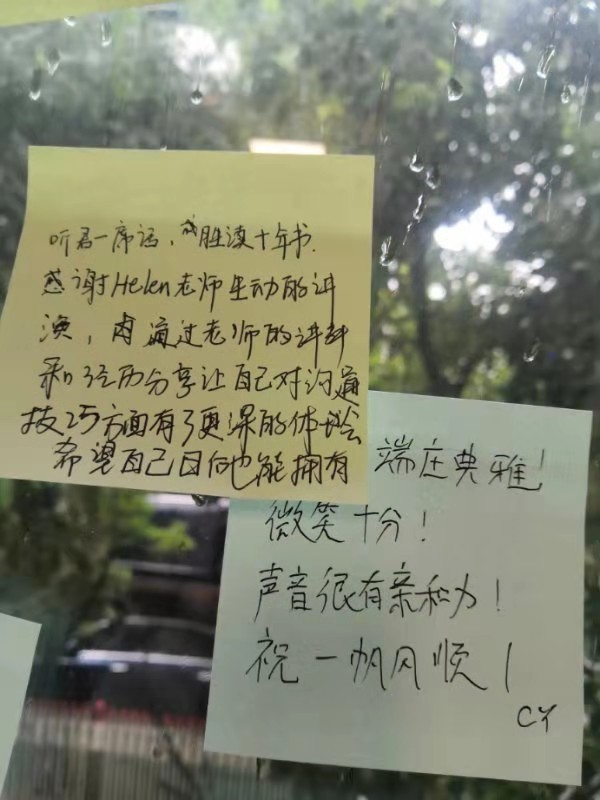 听君一席话，胜读十年书.
感谢Helen老师生动的讲
演，通过老师的讲解
和经历分享让自己对沟通
技巧方面有了更深的体会
希望自己日后也能拥有
端庄典雅！
微笑十分！
声音很有亲和力！
祝一帆风顺！
CY